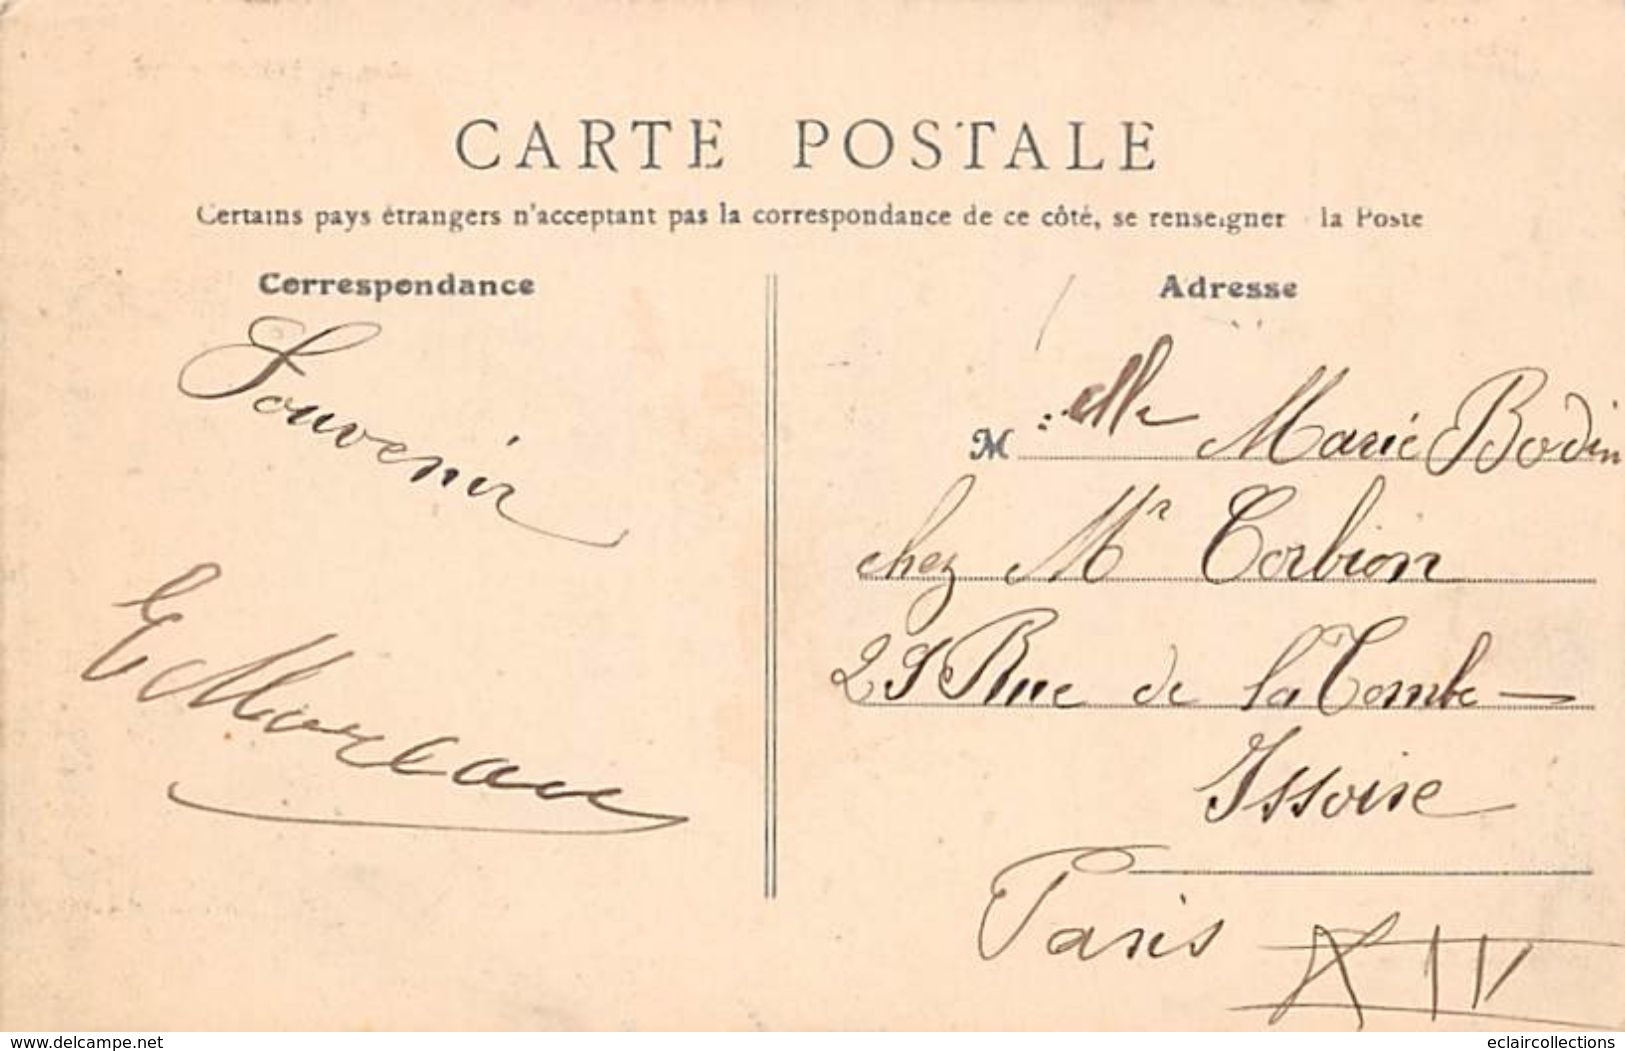 CARTE POSTALE
Certains pays étrangers n'acceptant pas la correspondance de ce côté, se renseigner la Poste
Correspondance
Souvenir
E Moreau
Adresse
M elle Marie Bodin
chez Mr Corbion
Rue de la Combe
Issoire
Paris XIV
www.delcampe.net
eclaircollections